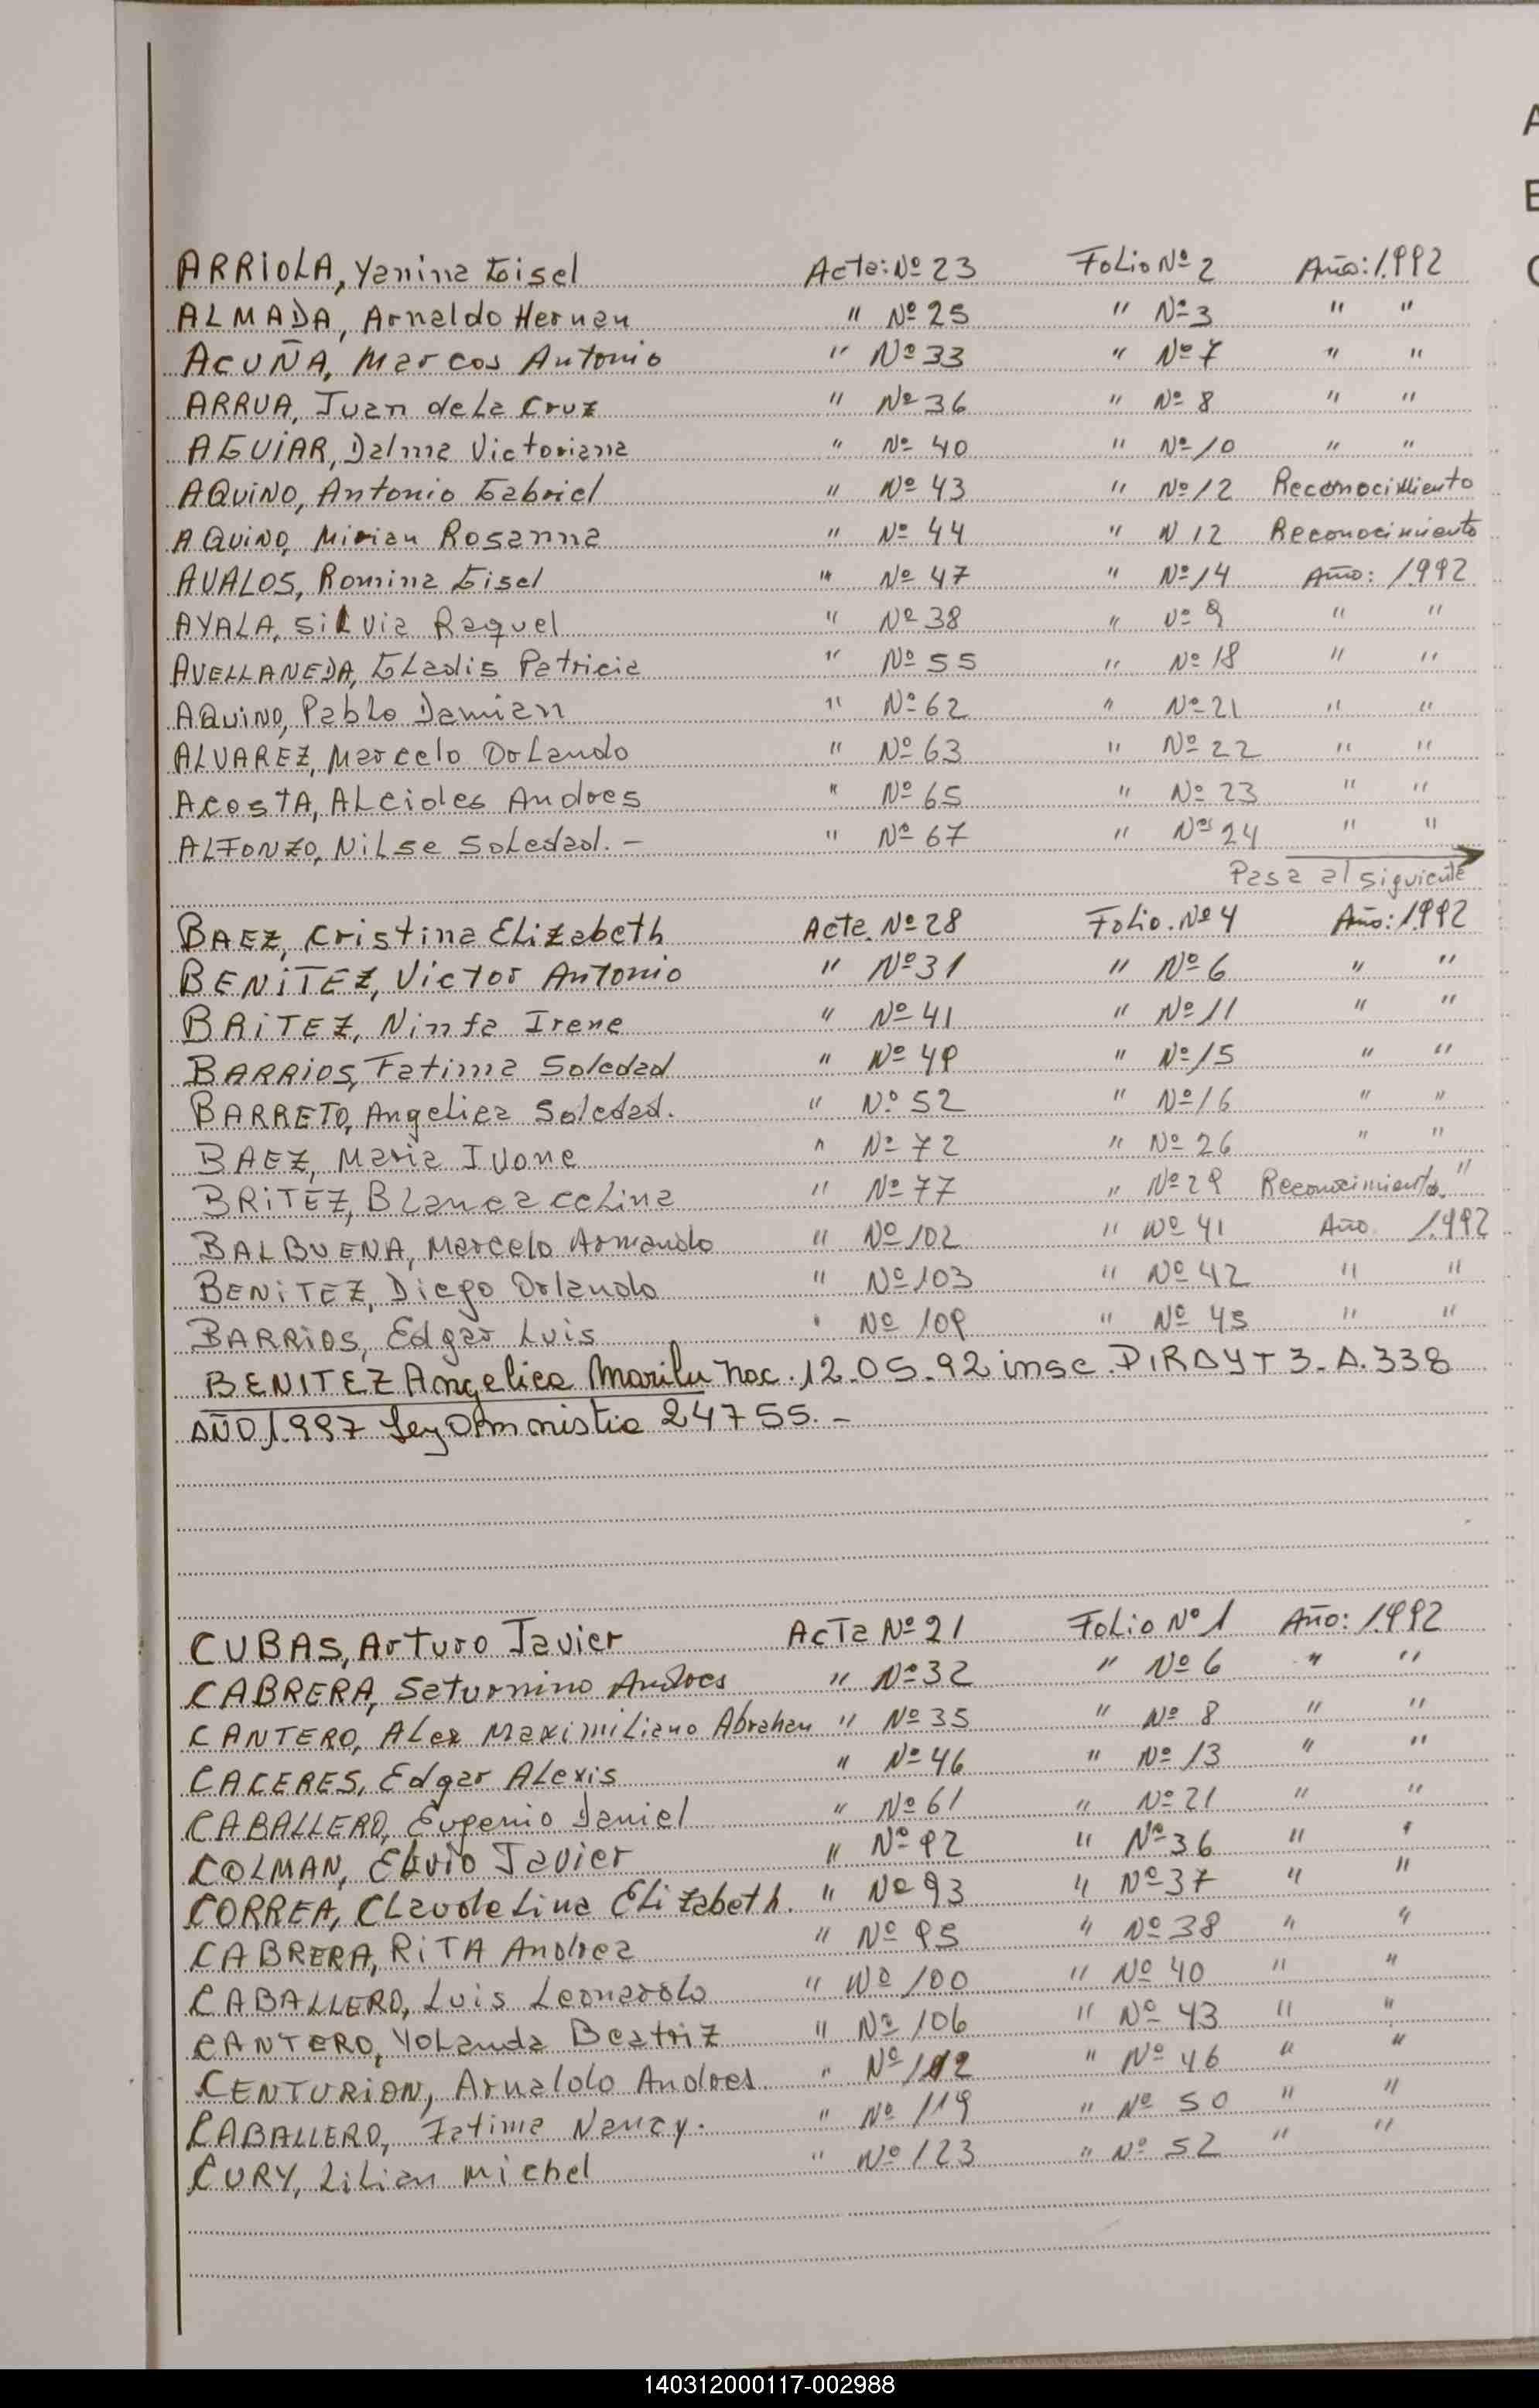 ARRIOLA, Yanina Gisel Acta: Nº 23 Folio Nº 2 Año: 1.992
ALMADA, Arnaldo Hernan " Nº 25 " Nº 3 " "
ACUÑA, Marcos Antonio " Nº 33 " Nº 7 " "
ARRUA, Juan de La Cruz " Nº 36 " Nº 8 " "
AGUIAR, Dalma Victoriana " Nº 40 " Nº 10 " "
AQUINO, Antonio Gabriel " Nº 43 " Nº 12 Reconocimiento
AQUINO, Mirian Rosanna " Nº 44 " N 12 Reconocimiento
AVALOS, Romina Gisel " Nº 47 " Nº 14 Año: 1.992
AYALA, Silvia Raquel " Nº 38 " Nº 9 " "
AVELLANEDA, Gladis Patricia " Nº 55 " Nº 18 " "
AQUINO, Pablo Damian " Nº 62 " Nº 21 " "
ALVAREZ, Marcelo Orlando " Nº 63 " Nº 22 " "
ACOSTA, Alcides Andres " Nº 65 " Nº 23 " "
ALFONZO, Nilse Soledad. - " Nº 67 " Nº 24 " "
Pasa al siguiente
BAEZ, Cristina Elizabeth Acta. Nº 28 Folio. Nº 4 Año: 1.992
BENITEZ, Victor Antonio " Nº 31 " Nº 6 " "
BRITEZ, Ninfa Irene " Nº 41 " Nº 11 " "
BARRIOS, Fatima Soledad " Nº 49 " Nº 15 " "
BARRETO, Angelica Soledad. " Nº 52 " Nº 16 " "
BAEZ, Maria Ivone " Nº 72 " Nº 26 " "
BRITEZ, Blanca Celina " Nº 77 " Nº 29 Reconocimiento. "
BALBUENA, Marcelo Armando " Nº 102 " Nº 41 Año 1.992
BENITEZ, Diego Orlando " Nº 103 " Nº 42 " "
BARRIOS, Edgar Luis " Nº 109 " Nº 45 " "
BENITEZ Angelica Marilu nac. 12-05-92 insc. PIRAY T 3-A. 338
AÑO 1.997 Ley Amnistia 24755. -
CUBAS, Arturo Javier Acta Nº 21 Folio Nº 1 Año: 1.992
CABRERA, Saturnino Andres " Nº 32 " Nº 6 " "
CANTERO, Alex Maximiliano Abrahan " Nº 35 " Nº 8 " "
CACERES, Edgar Alexis " Nº 46 " Nº 13 " "
CABALLERO, Eugenio Daniel " Nº 61 " Nº 21 " "
COLMAN, Elvio Javier " Nº 92 " Nº 36 " "
CORREA, Claudelina Elizabeth. " Nº 93 " Nº 37 " "
CABRERA, RITA Andrea " Nº 95 " Nº 38 " "
CABALLERO, Luis Leonardo " Nº 100 " Nº 40 " "
CANTERO, Yolanda Beatriz " Nº 106 " Nº 43 " "
CENTURION, Arnaldo Andres. " Nº 112 " Nº 46 " "
CABALLERO, Fatima Nancy. " Nº 119 " Nº 50 " "
CURY, Lilian Michel " Nº 123 " Nº 52 " "
140312000117-002988